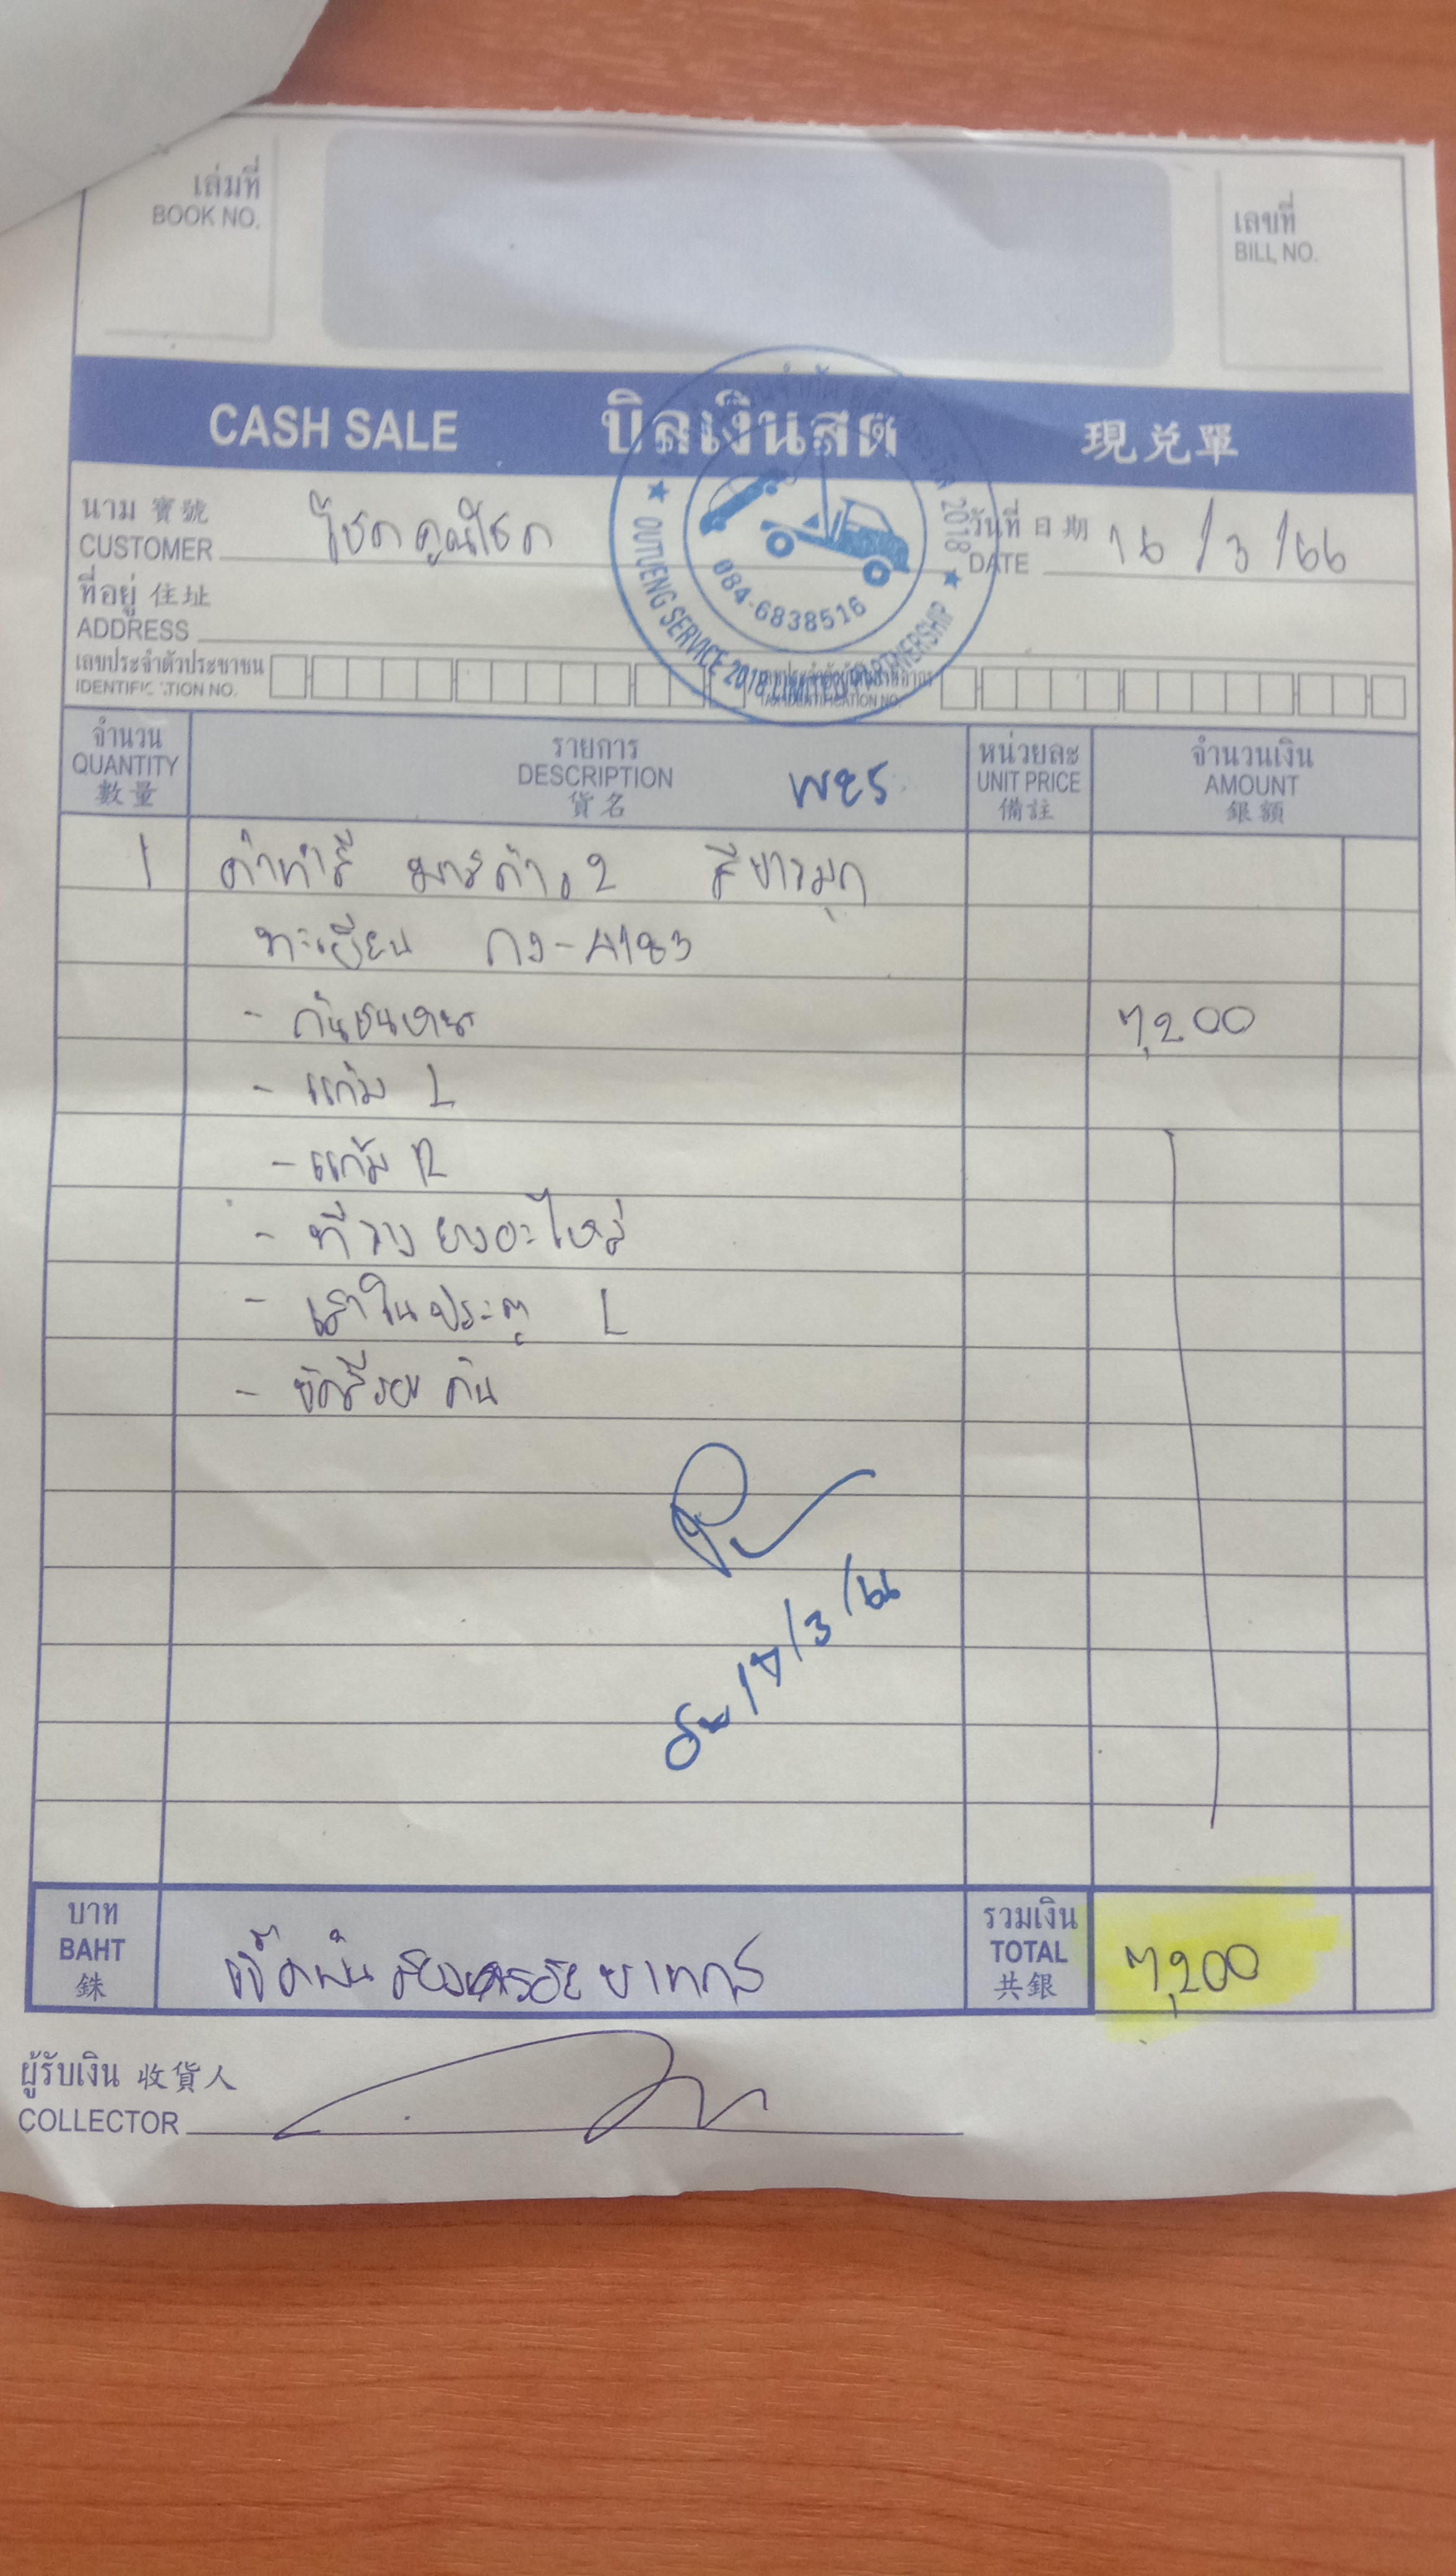 เล่มที่
BOOK NO.
เลขที่
BILL NO.
CASH SALE บิลเงินสด 現兑單
นาม 寶號
CUSTOMER โชคคูณโชค
วันที่ 日期
DATE 16/3/66
ที่อยู่ 住址
ADDRESS
2018
084-6838516
OUTUENG SERVICE 2018 LIMITED PARTNERSHIP
เลขประจำตัวประชาชน
IDENTIFICATION NO.
จำนวน
QUANTITY
數量
รายการ
DESCRIPTION
貨名
หน่วยละ
UNIT PRICE
備註
จำนวนเงิน
AMOUNT
銀額
1 ค่าทำสี มาสด้า 2 สีขาวมุก
ทะเบียน กง-4183
- กันชนหน้า 7,200
- แก้ม L
- แก้ม R
- ที่วางยางอะไหล่
- เสาในประตู L
- ขัดสีรอบคัน
17/3/66
บาท
BAHT
銖
เจ็ดพันสองร้อยบาทถ้วน
รวมเงิน
TOTAL
共銀
7,200
ผู้รับเงิน 收貨人
COLLECTOR